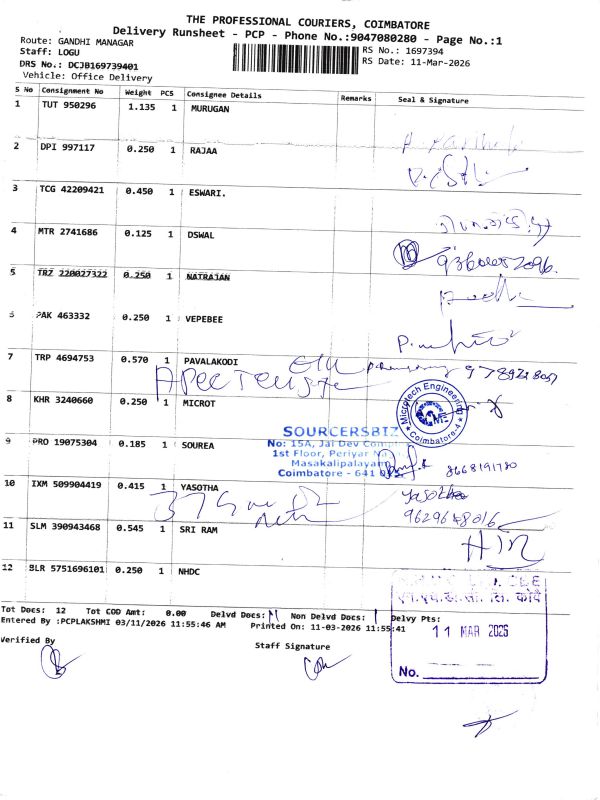 THE PROFESSIONAL COURIERS, COIMBATORE
Delivery Runsheet - PCP - Phone No.:9047080280 - Page No.:1
Route: GANDHI MANAGAR
Staff: LOGU
RS No.: 1697394
DRS No.: DCJB169739401
RS Date: 11-Mar-2026
Vehicle: Office Delivery
S No Consignment No Weight PCS Consignee Details Remarks Seal & Signature
1 TUT 950296 1.135 1 MURUGAN
2 DPI 997117 0.250 1 RAJAA
3 TCG 42209421 0.450 1 ESWARI.
4 MTR 2741686 0.125 1 DSWAL
5 TRZ 220027322 0.250 1 NATRAJAN
6 PAK 463332 0.250 1 VEPEBEE
7 TRP 4694753 0.570 1 PAVALAKODI
8 KHR 3240660 0.250 1 MICROT
Microtech Engineering
Coimbatore-4
SOURCERSBIZ
9 PRO 19075304 0.185 1 SOUREA
No: 15A, Jai Dev
1st Floor, Periyar
Masakalipalayam
Coimbatore - 641
8668191780
10 IXM 509904419 0.415 1 YASOTHA
Yasotha
9629648016
11 SLM 390943468 0.545 1 SRI RAM
12 BLR 5751696101 0.250 1 NHDC
11 MAR 2026
No.
Tot Docs: 12 Tot COD Amt: 0.00 Delvd Docs: Non Delvd Docs: Delvy Pts:
Entered By :PCPLAKSHMI 03/11/2026 11:55:46 AM Printed On: 11-03-2026 11:55:41
Verified By
Staff Signature